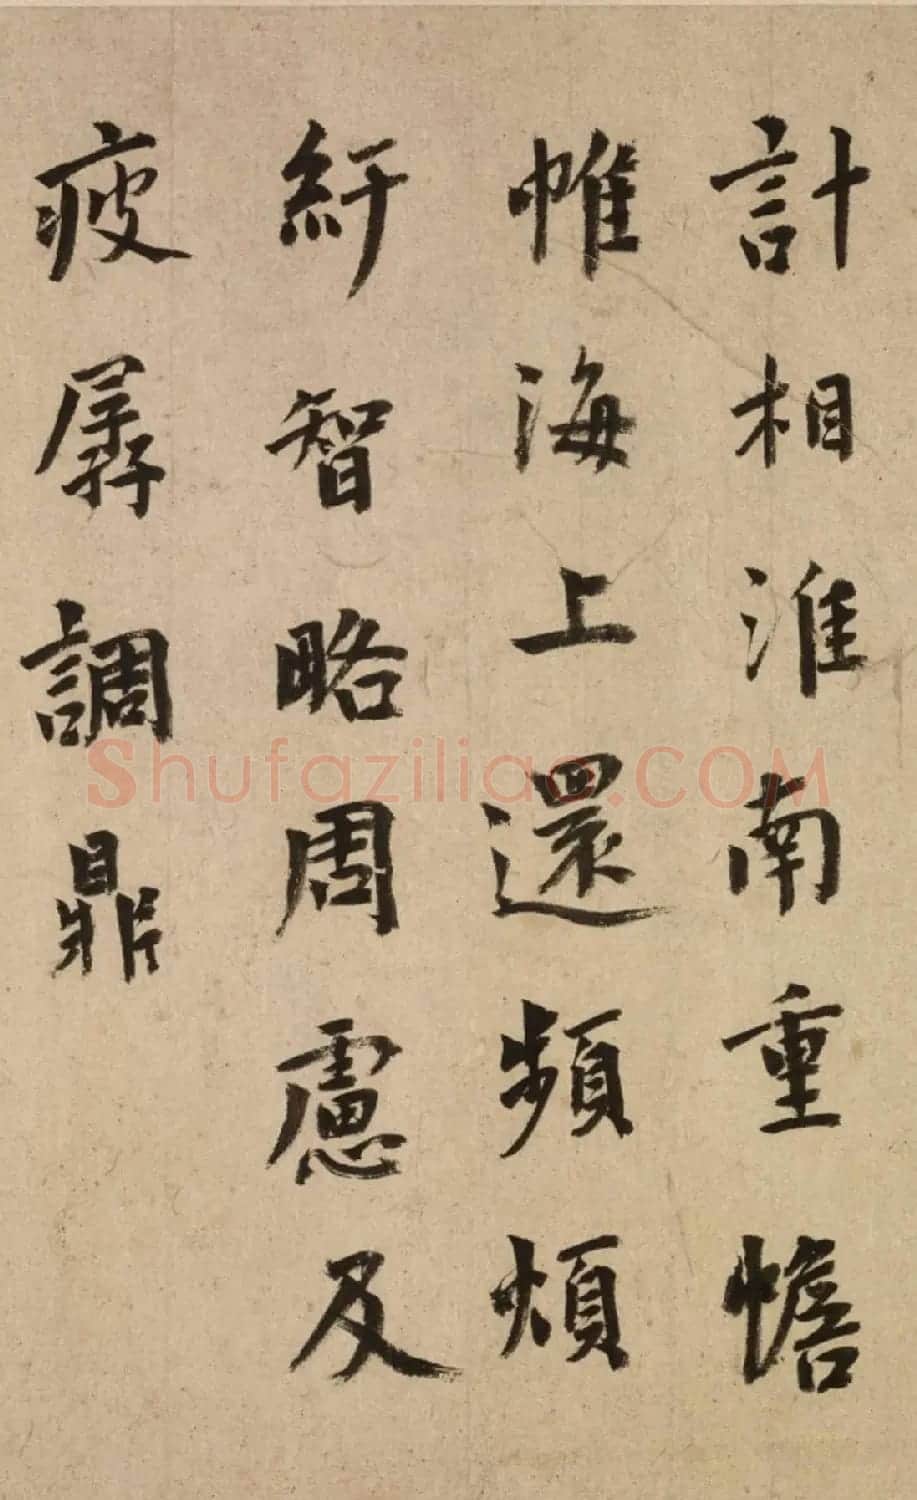 計相淮南重幨
帷海上還頻煩
紆智略周慮及
疲孱調鼎
Shufaziliao.COM